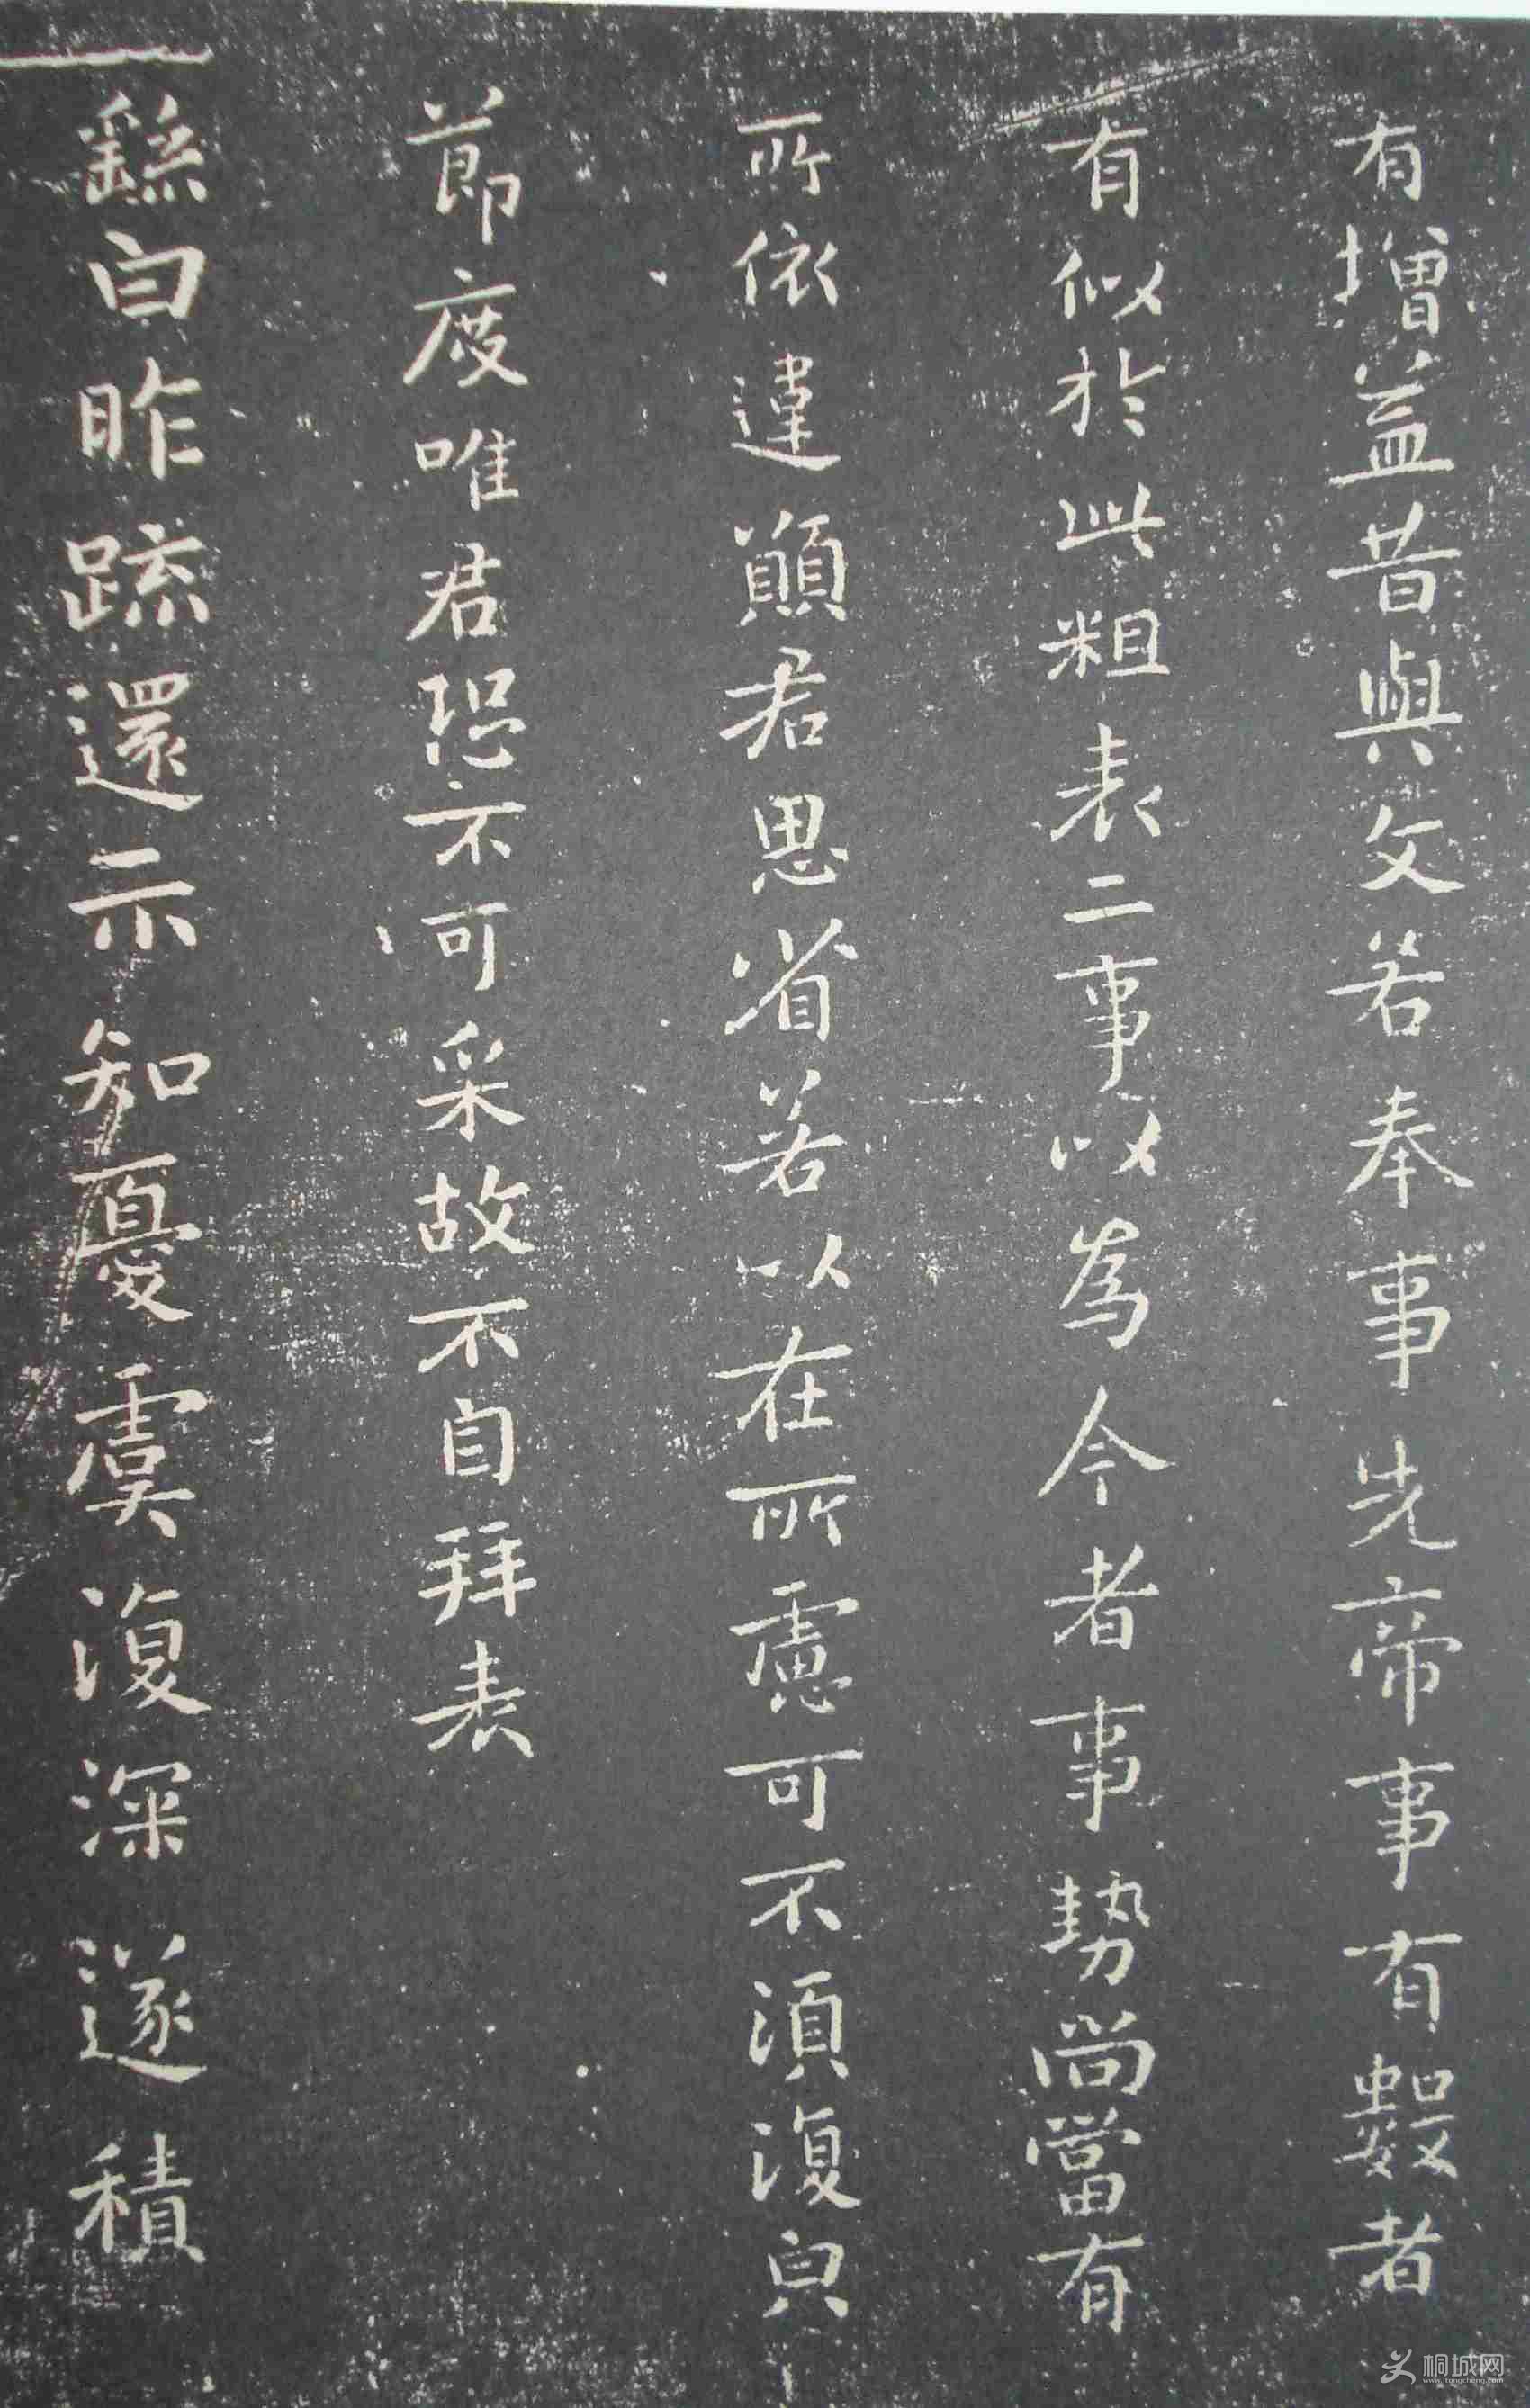 有增益昔與文若奉事先帝事有數者
有似於此粗表二事以為今者事勢尚當有
所依違願君思省若以在所慮可不須復皃
節度唯君恐不可采故不自拜表
繇白昨疏還示知憂虞復深遂積
桐城网
www.itongcheng.com